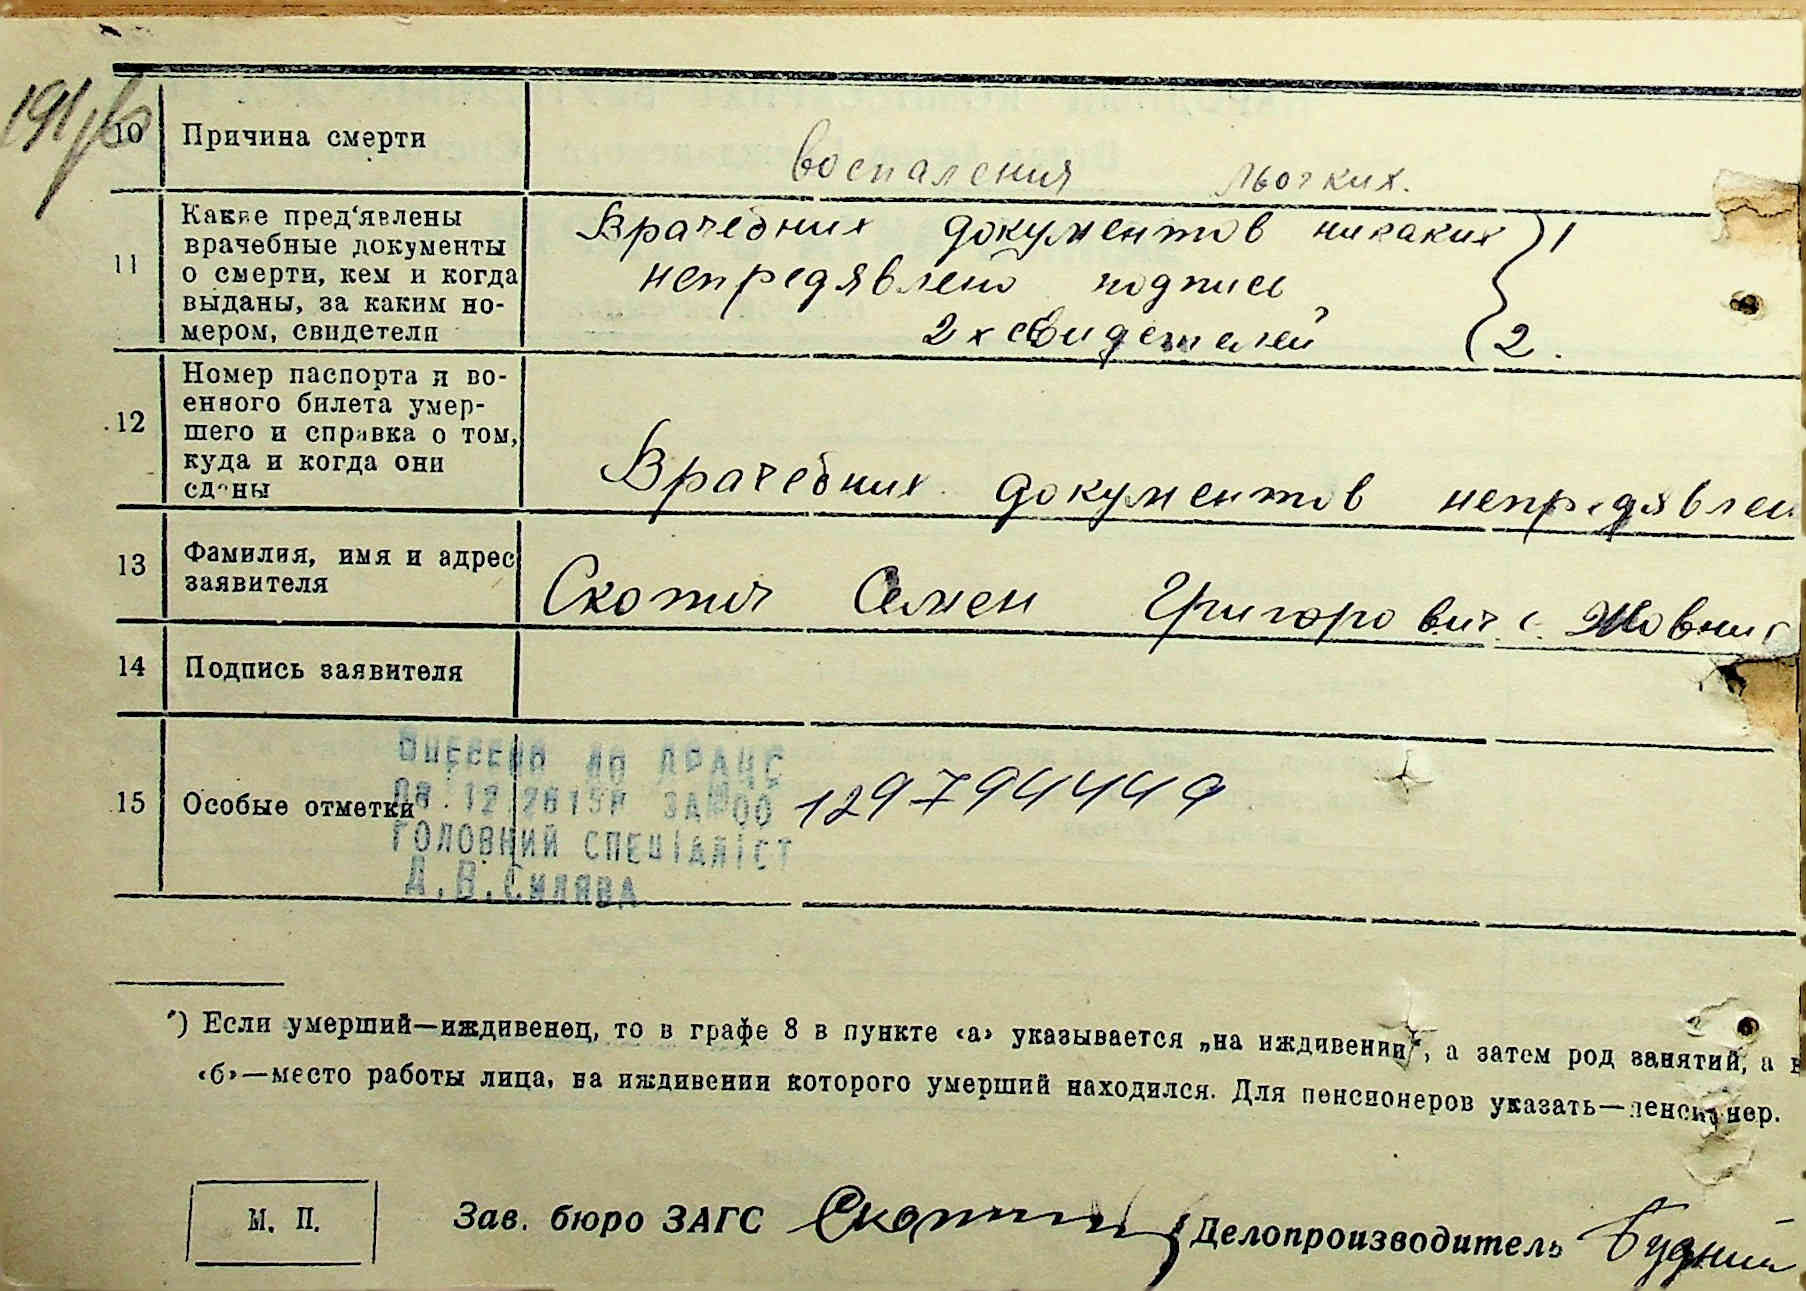 191/б
10 Причина смерти воспаления льогких.
11 Какие пред'явлены
врачебные документы
о смерти, кем и когда
выданы, за каким но-
мером, свидетели
Врачебних документов никаких } 1
непредявлено подписи
2х свидетелей 2.
12 Номер паспорта и во-
енного билета умер-
шего и справка о том,
куда и когда они
сданы
Врачебних документов непредявлен
13 Фамилия, имя и адрес
заявителя
Семен Григорович с. Жовнис
14 Подпись заявителя
15 Особые отметки
ВНЕСЕНО ДО ДРАЦС
ГОЛОВНИЙ СПЕЦІАЛІСТ
129794449
*) Если умерший—иждивенец, то в графе 8 в пункте «а» указывается „на иждивении“, а затем род занятий, а в
«б»—место работы лица, на иждивении которого умерший находился. Для пенсионеров указать—пенсионер.
М. П. Зав. бюро ЗАГС Делопроизводитель